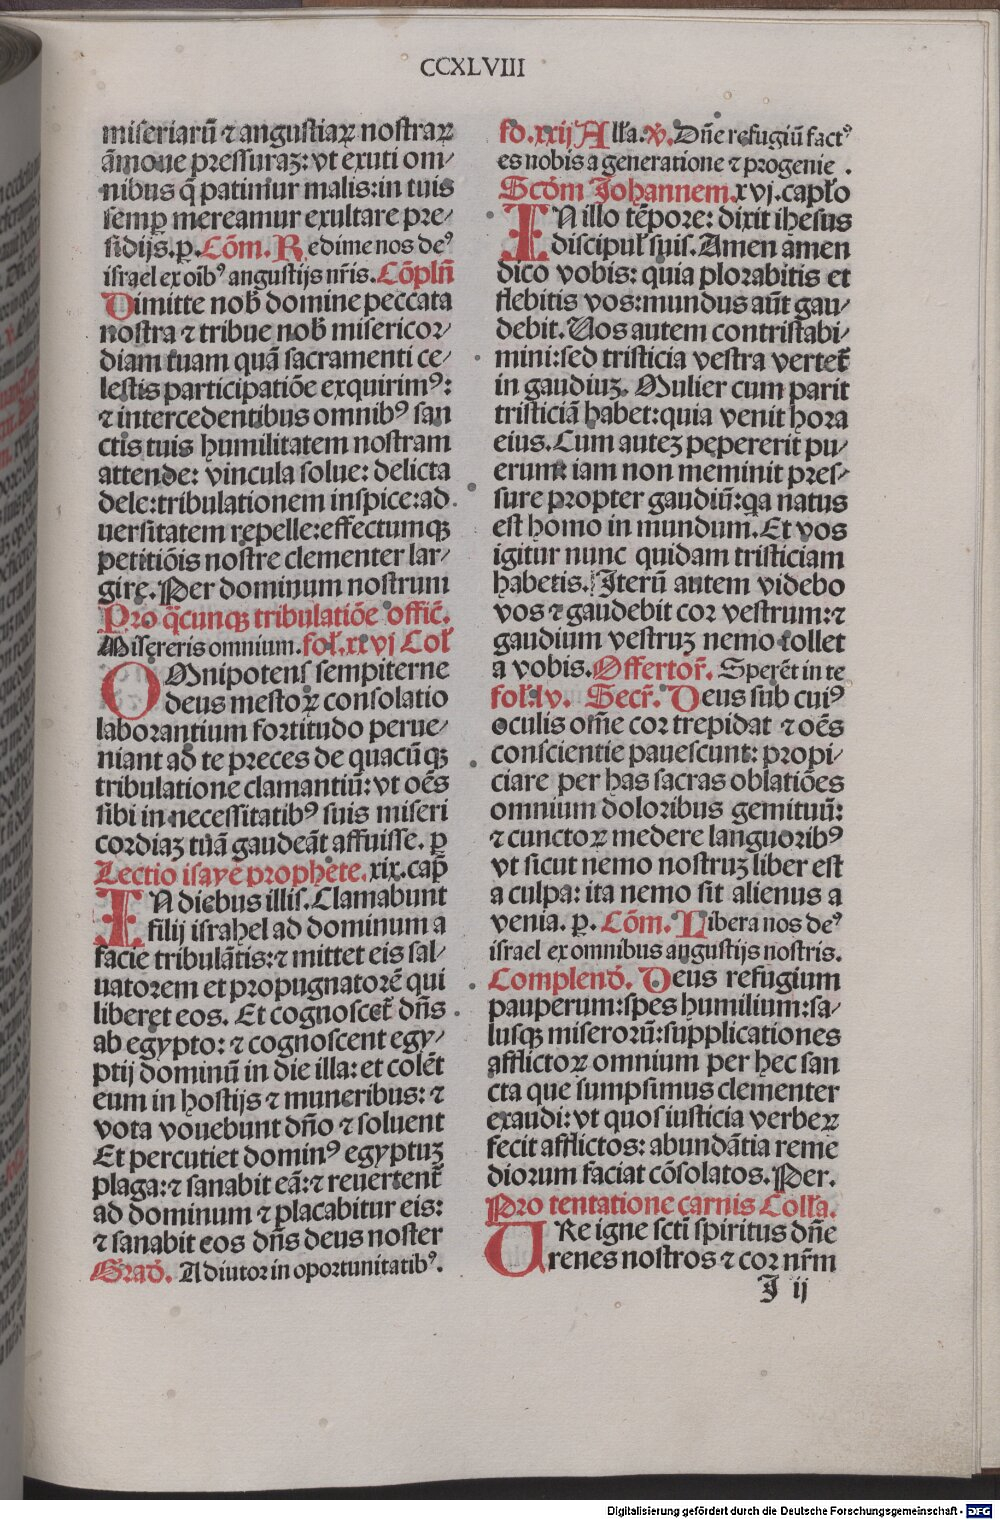 CCXLVIII
miseriarū ⁊ angustiaꝝ nostraꝝ
āmoue pressuraꝫ: vt exuti om⸗
nibus q̄ patimur malis: in tuis
semꝑ mereamur exultare pre⸗
sidijs. ꝑ. Cōm. Redime nos deꝰ
israel ex oībꝰ angustijs nr̄is. Cōpln̄
Dimitte nob̄ domine peccata
nostra ⁊ tribue nob̄ misericor⸗
diam tuam quā sacramenti ce⸗
lestis participatiōe exquirimꝰ:
⁊ intercedentibus omnibꝰ san
ctis tuis humilitatem nostram
attende: vincula solue: delicta
dele: tribulationem inspice: ad
uersitatem repelle: effectumqꝫ
petitiōis nostre clementer lar⸗
gire. Per dominum nostrum
Pro q̈cunqꝫ tribulatiōe offic̄.
Misereris omnium. fol̄. xxvj Col̄
OMnipotens sempiterne
deus mestoꝝ consolatio
laborantium fortitudo perue⸗
niant ad te preces de quacūqꝫ
tribulatione clamantiū: vt oēs
sibi in necessitatibꝰ suis miseri
cordiaꝫ tuā gaudeāt affuisse. ꝑ
Lectio isaye prophete. xix. cap̄
IN diebus illis. Clamabunt
filij israhel ad dominum a
facie tribulātis: ⁊ mittet eis sal⸗
uatorem et propugnatorē qui
liberet eos. Et cognoscet̄ dn̄s
ab egypto: ⁊ cognoscent egy⸗
ptij dominū in die illa: et colēt
eum in hostijs ⁊ muneribus: ⁊
vota vouebunt dn̄o ⁊ soluent
Et percutiet dominꝰ egyptuꝫ
plaga: ⁊ sanabit eā: ⁊ reuertent̄
ad dominum ⁊ placabitur eis:
⁊ sanabit eos dn̄s deus noster
Grad̄. Adiutor in oportunitatibꝰ.
fo. xxij Alła. ꝟ. Dn̄e refugiū factꝰ
es nobis a generatione ⁊ progenie .
Scd̄m Johannem. xvj. capło
IN illo tēpore: dixit ihesus
discipul̄ suis. Amen amen
dico vobis: quia plorabitis et
flebitis vos: mundus aūt gau⸗
debit. Uos autem contristabi⸗
mini: sed tristicia vestra vertet̄
in gaudiuꝫ. Mulier cum parit
tristiciā habet: quia venit hora
eius. Cum auteꝫ pepererit pu⸗
erum: iam non meminit pres⸗
sure propter gaudiū: qa natus
est homo in mundum. Et vos
igitur nunc quidam tristiciam
habetis. Iterū autem videbo
vos ⁊ gaudebit cor vestrum: ⁊
gaudium vestruꝫ nemo tollet
a vobis. Offertor̄. Sperēt in te
fol̄. lv. Secr̄. Deus sub cuiꝰ
oculis om̄e cor trepidat ⁊ oēs
conscientie pauescunt: propi⸗
ciare per has sacras oblatiōes
omnium doloribus gemituū:
⁊ cunctoꝝ medere languoribꝰ
vt sicut nemo nostruꝫ liber est
a culpa: ita nemo sit alienus a
venia. ꝑ. Cōm. Libera nos deꝰ
israel ex omnibus augustijs nostris.
Complend̄. Deus refugium
pauperum: spes humilium: sa⸗
lusqꝫ miserorū: supplicationes
afflictoꝝ omnium per hec san
cta que sumpsimus clementer
exaudi: vt quos iusticia verbeꝝ
fecit afflictos: abundātia reme
diorum faciat cōsolatos. Per.
Pro tentatione carnis Colla.
URe igne scti spiritus dn̄e
renes nostros ⁊ cor nr̄m
I ij
Digitalisierung gefördert durch die Deutsche Forschungsgemeinschaft - DFG